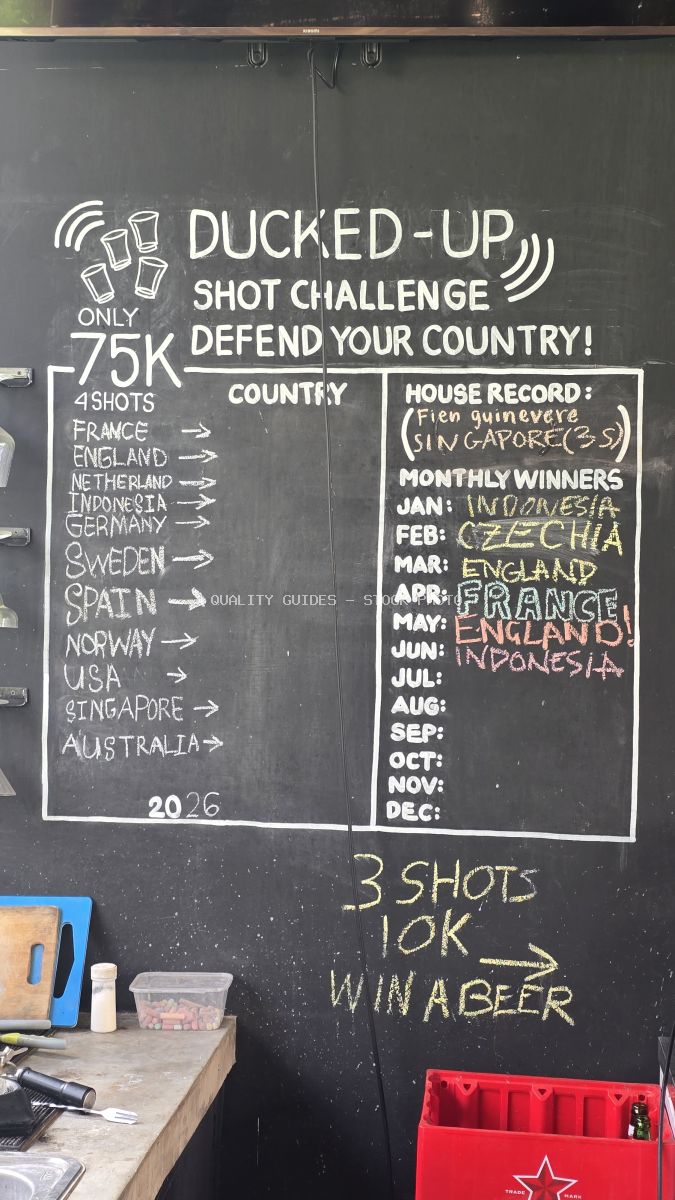 xiaomi
DUCKED-UP
SHOT CHALLENGE
DEFEND YOUR COUNTRY!
ONLY
75K
4 SHOTS
COUNTRY
FRANCE →
ENGLAND →
NETHERLAND →
INDONESIA →
GERMANY →
SWEDEN →
SPAIN →
NORWAY →
USA →
SINGAPORE →
AUSTRALIA →
2026
HOUSE RECORD:
(Fien guinevere
SINGAPORE(3 S))
MONTHLY WINNERS
JAN: INDONESIA
FEB: CZECHIA
MAR: ENGLAND
APR: FRANCE
MAY: ENGLAND!
JUN: INDONESIA
JUL:
AUG:
SEP:
OCT:
NOV:
DEC:
QUALITY GUIDES – STOCK PHOTO
3 SHOTS
10K →
WIN A BEER
TRADE MARK